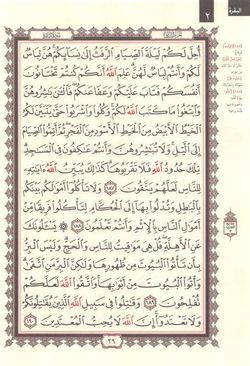 البقرة
٢
أُحِلَّ لَكُمْ لَيْلَةَ ٱلصِّيَامِ ٱلرَّفَثُ إِلَىٰ نِسَآئِكُمْ هُنَّ لِبَاسٌ
لَّكُمْ وَأَنتُمْ لِبَاسٌ لَّهُنَّ عَلِمَ ٱللَّهُ أَنَّكُمْ كُنتُمْ تَخْتَانُونَ
أَنفُسَكُمْ فَتَابَ عَلَيْكُمْ وَعَفَا عَنكُمْ فَٱلْـَٰٔنَ بَـٰشِرُوهُنَّ
وَٱبْتَغُوا۟ مَا كَتَبَ ٱللَّهُ لَكُمْ وَكُلُوا۟ وَٱشْرَبُوا۟ حَتَّىٰ يَتَبَيَّنَ لَكُمُ
ٱلْخَيْطُ ٱلْأَبْيَضُ مِنَ ٱلْخَيْطِ ٱلْأَسْوَدِ مِنَ ٱلْفَجْرِ ثُمَّ أَتِمُّوا۟ ٱلصِّيَامَ
إِلَى ٱلَّيْلِ وَلَا تُبَـٰشِرُوهُنَّ وَأَنتُمْ عَـٰكِفُونَ فِى ٱلْمَسَـٰجِدِ
تِلْكَ حُدُودُ ٱللَّهِ فَلَا تَقْرَبُوهَا كَذَٰلِكَ يُبَيِّنُ ٱللَّهُ ءَايَـٰتِهِۦ
لِلنَّاسِ لَعَلَّهُمْ يَتَّقُونَ ١٨٧ وَلَا تَأْكُلُوٓا۟ أَمْوَٰلَكُم بَيْنَكُم
بِٱلْبَـٰطِلِ وَتُدْلُوا۟ بِهَآ إِلَى ٱلْحُكَّامِ لِتَأْكُلُوا۟ فَرِيقًا مِّنْ
أَمْوَٰلِ ٱلنَّاسِ بِٱلْإِثْمِ وَأَنتُمْ تَعْلَمُونَ ١٨٨ يَسْـَٔلُونَكَ
عَنِ ٱلْأَهِلَّةِ قُلْ هِىَ مَوَٰقِيتُ لِلنَّاسِ وَٱلْحَجِّ وَلَيْسَ ٱلْبِرُّ
بِأَن تَأْتُوا۟ ٱلْبُيُوتَ مِن ظُهُورِهَا وَلَـٰكِنَّ ٱلْبِرَّ مَنِ ٱتَّقَىٰ
وَأْتُوا۟ ٱلْبُيُوتَ مِنْ أَبْوَٰبِهَا وَٱتَّقُوا۟ ٱللَّهَ لَعَلَّكُمْ
تُفْلِحُونَ ١٨٩ وَقَـٰتِلُوا۟ فِى سَبِيلِ ٱللَّهِ ٱلَّذِينَ يُقَـٰتِلُونَكُمْ
وَلَا تَعْتَدُوٓا۟ إِنَّ ٱللَّهَ لَا يُحِبُّ ٱلْمُعْتَدِينَ ١٩٠
٢٩